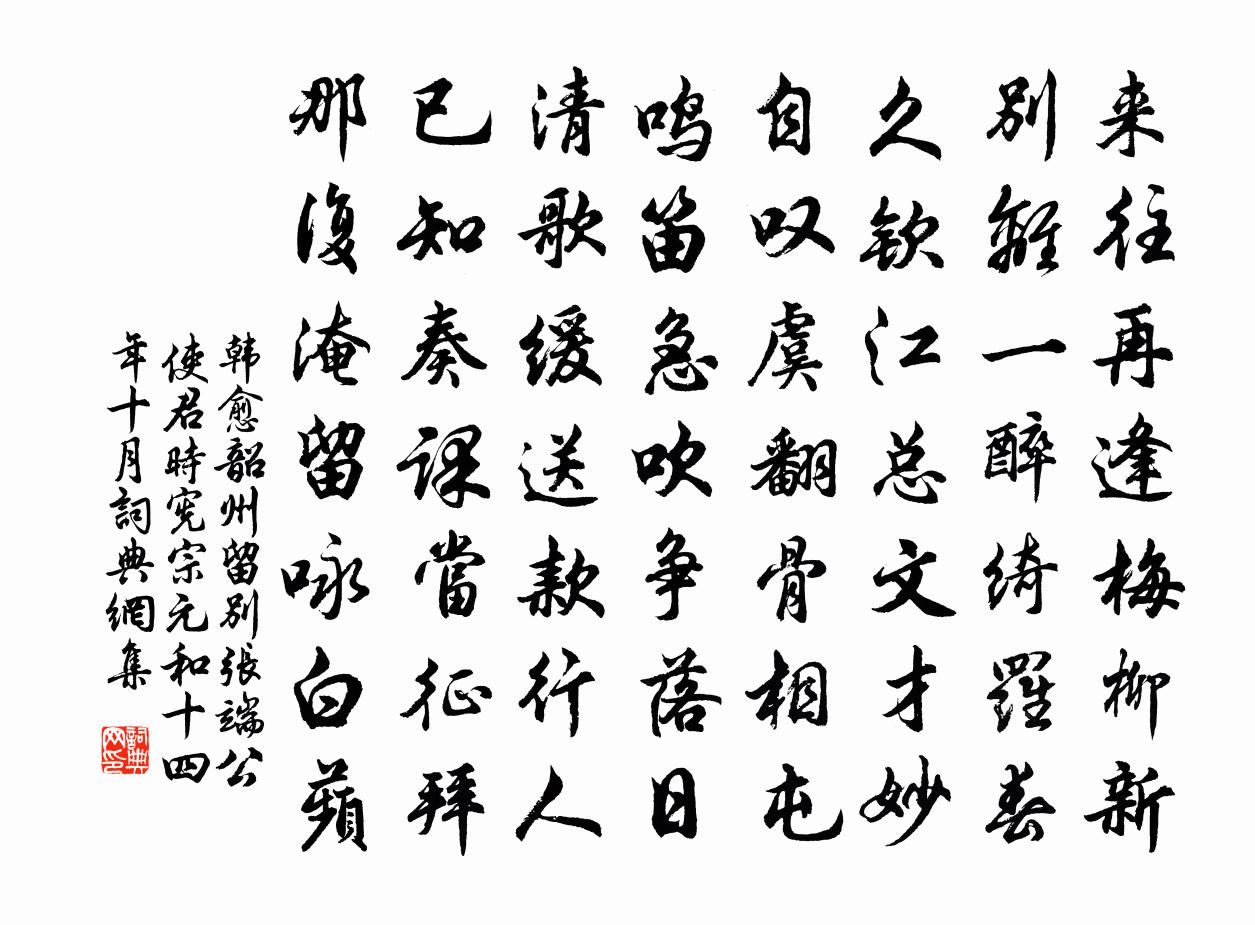 来往再逢梅柳新
别離一醉綺羅春
久钦江总文才妙
自叹虞翻骨相屯
鸣笛急吹争落日
清歌缓送款行人
已知奏课當征拜
那復淹留咏白蘋
韩愈韶州留别張端公
使君時宪宗元和十四
年十月詞典網集
詞典网印